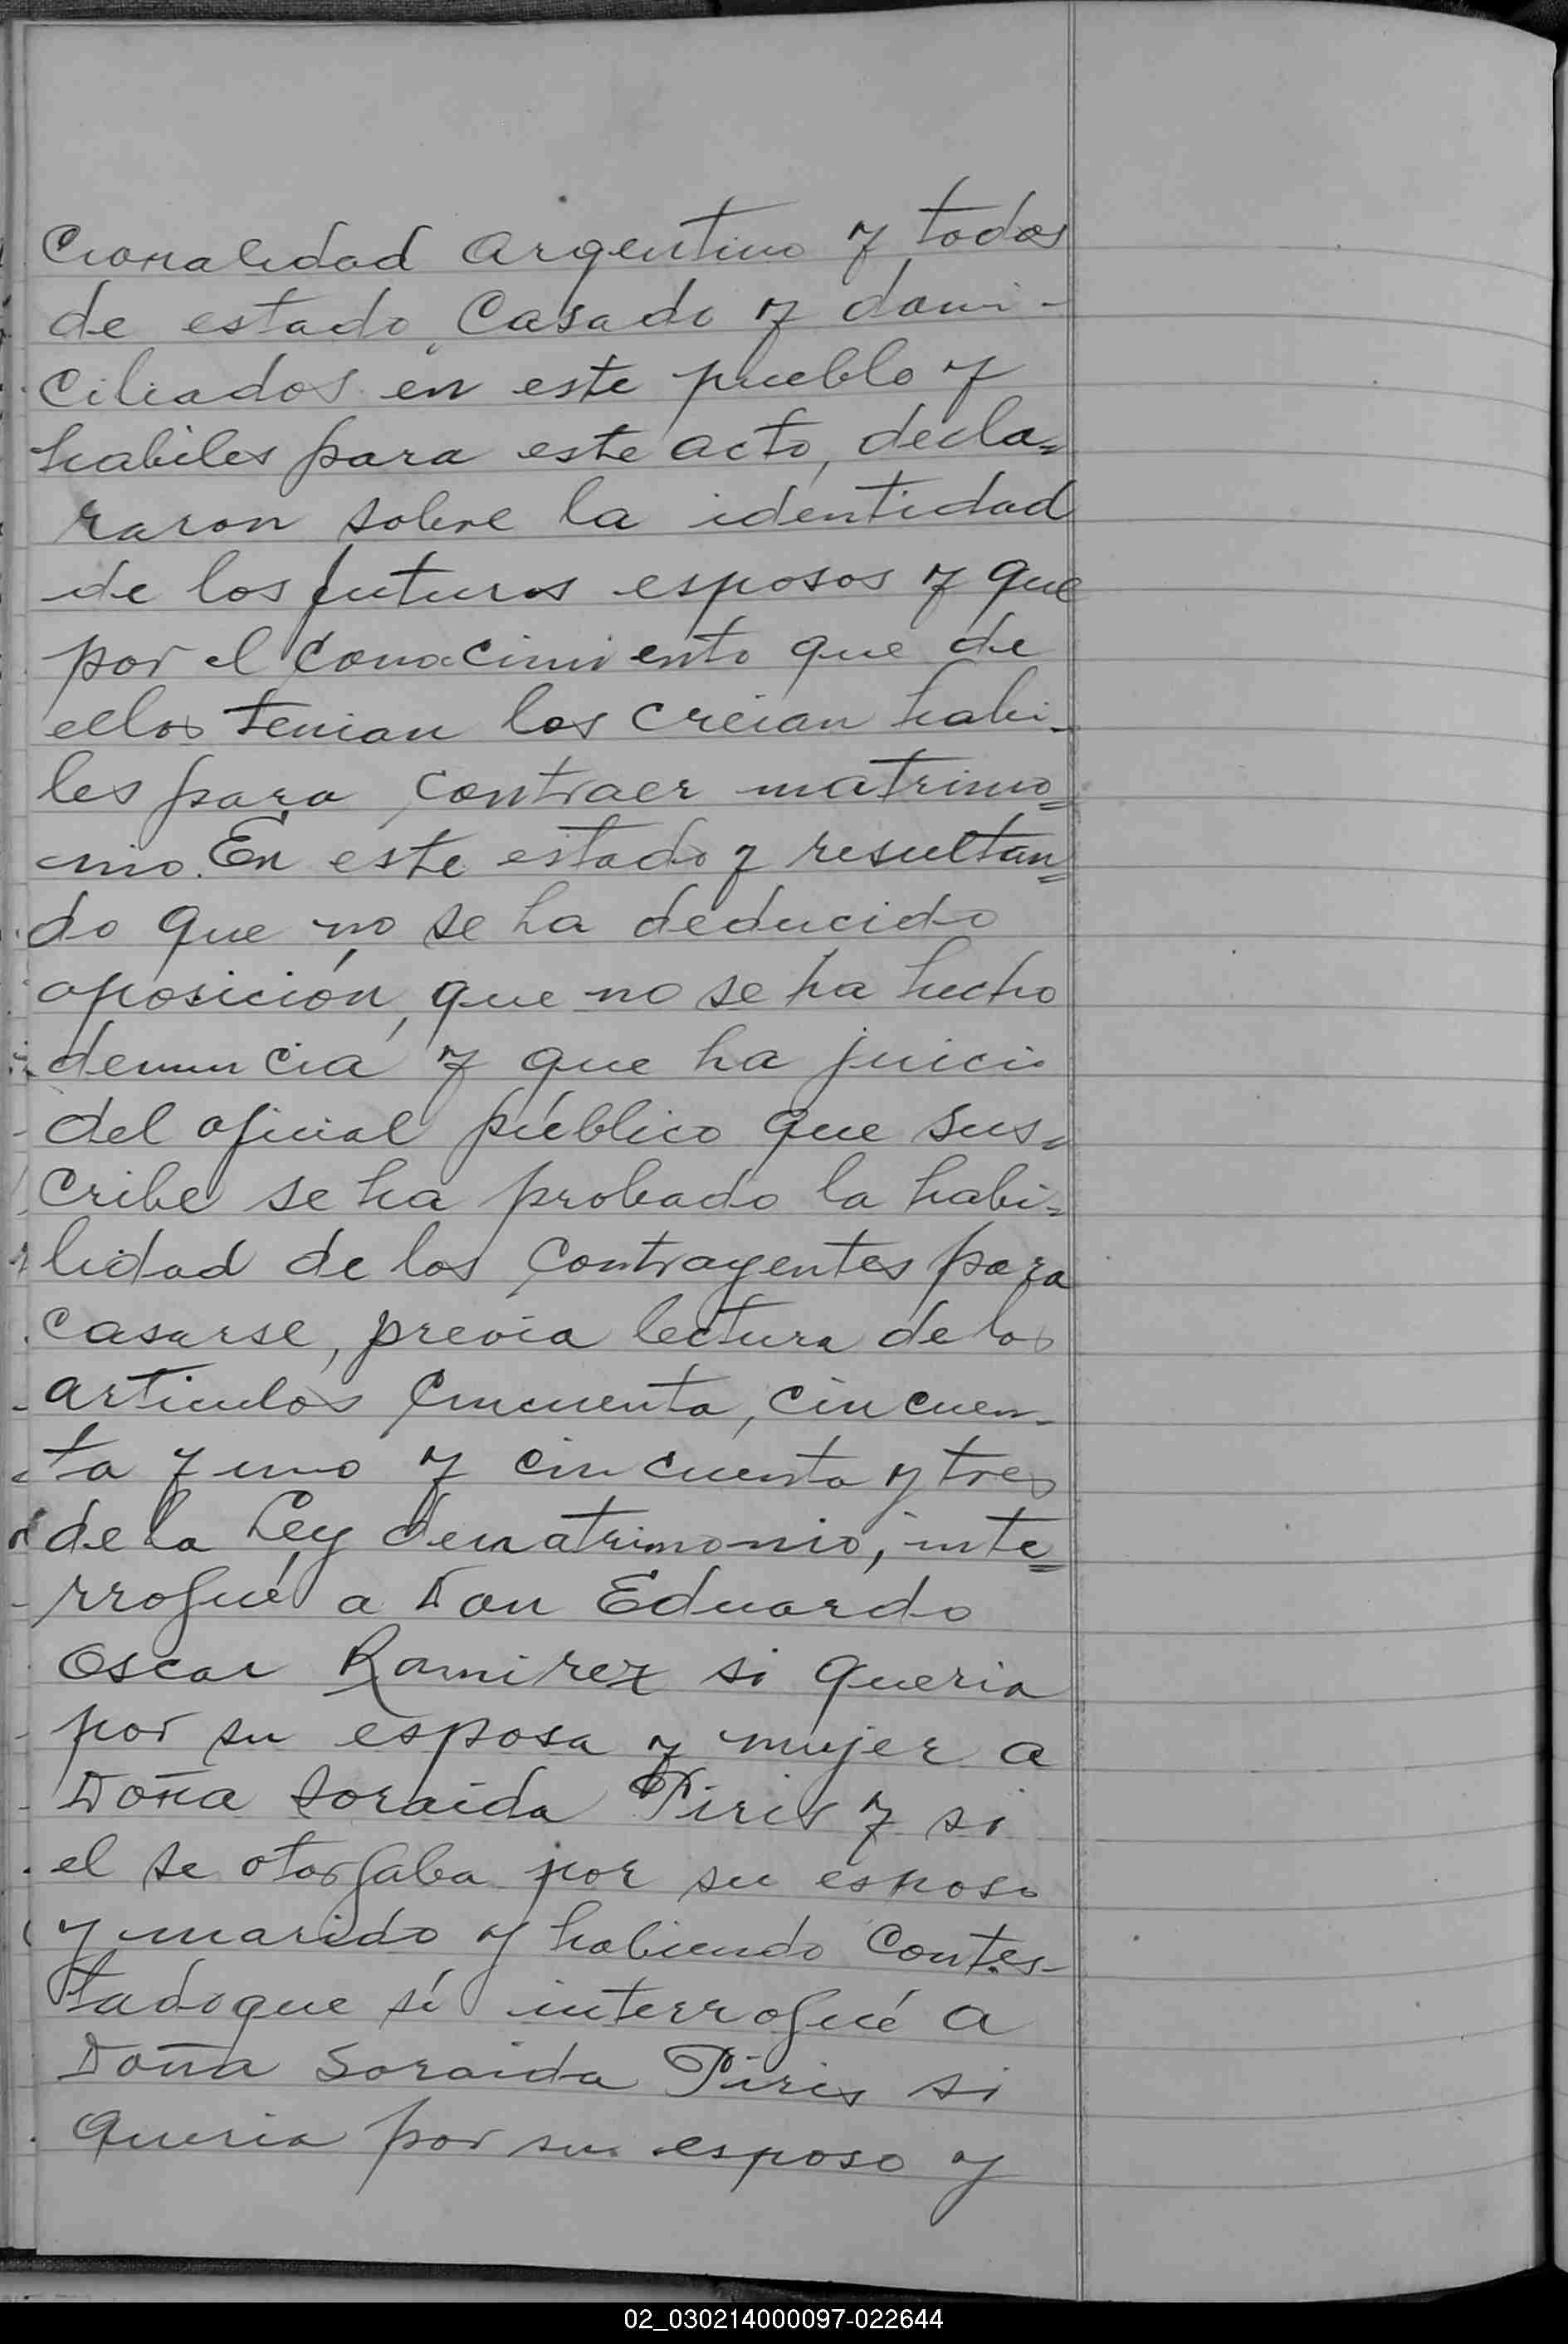 cionalidad Argentino y todos
de estado Casado y domi-
ciliados en este pueblo y
habiles para este acto, decla=
raron sobre la identidad
de los futuros esposos y que
por el conocimiento que de
ellos tenian los creian habi-
les para contraer matrimo=
nio. En este estado y resultan=
do que no se ha deducido
oposición, que no se ha hecho
denuncia y que ha juicio
del oficial público que sus=
cribe se ha probado la habi=
lidad de los contrayentes para
casarse, previa lectura de los
articulos cincuenta, cincuen-
ta y uno y cincuenta y tres
de la Ley de matrimonio, inte=
rrogué a Don Eduardo
Oscar Ramirez si queria
por su esposa y mujer a
Doña Soraida Piris y si
el se otorgaba por su esposo
y marido y habiendo contes-
tado que sí interrogué a
Doña Soraida Piris si
queria por su esposo y
02_030214000097-022644